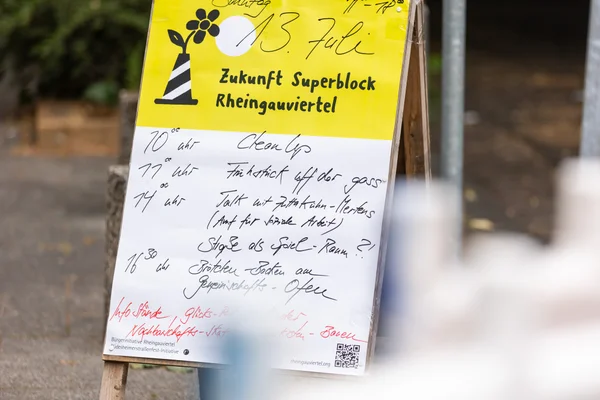 Sonntag 11-18
13. Juli
Zukunft Superblock
Rheingauviertel
10⁰⁰ uhr Clean Up
11⁰⁰ uhr Frühstück uff der gass
14⁰⁰ uhr Talk mit Jutta Kühn-Mertens
(Amt für soziale Arbeit)
Straße als Spiel-Raum ?!
16³⁰ uhr Brötchen Backen am
Gemeinschafts-Ofen
Info Stände, Glücks-
Nachbarschafts- Bauen
Bürgerinitiative Rheingauviertel
rheingauviertel.org